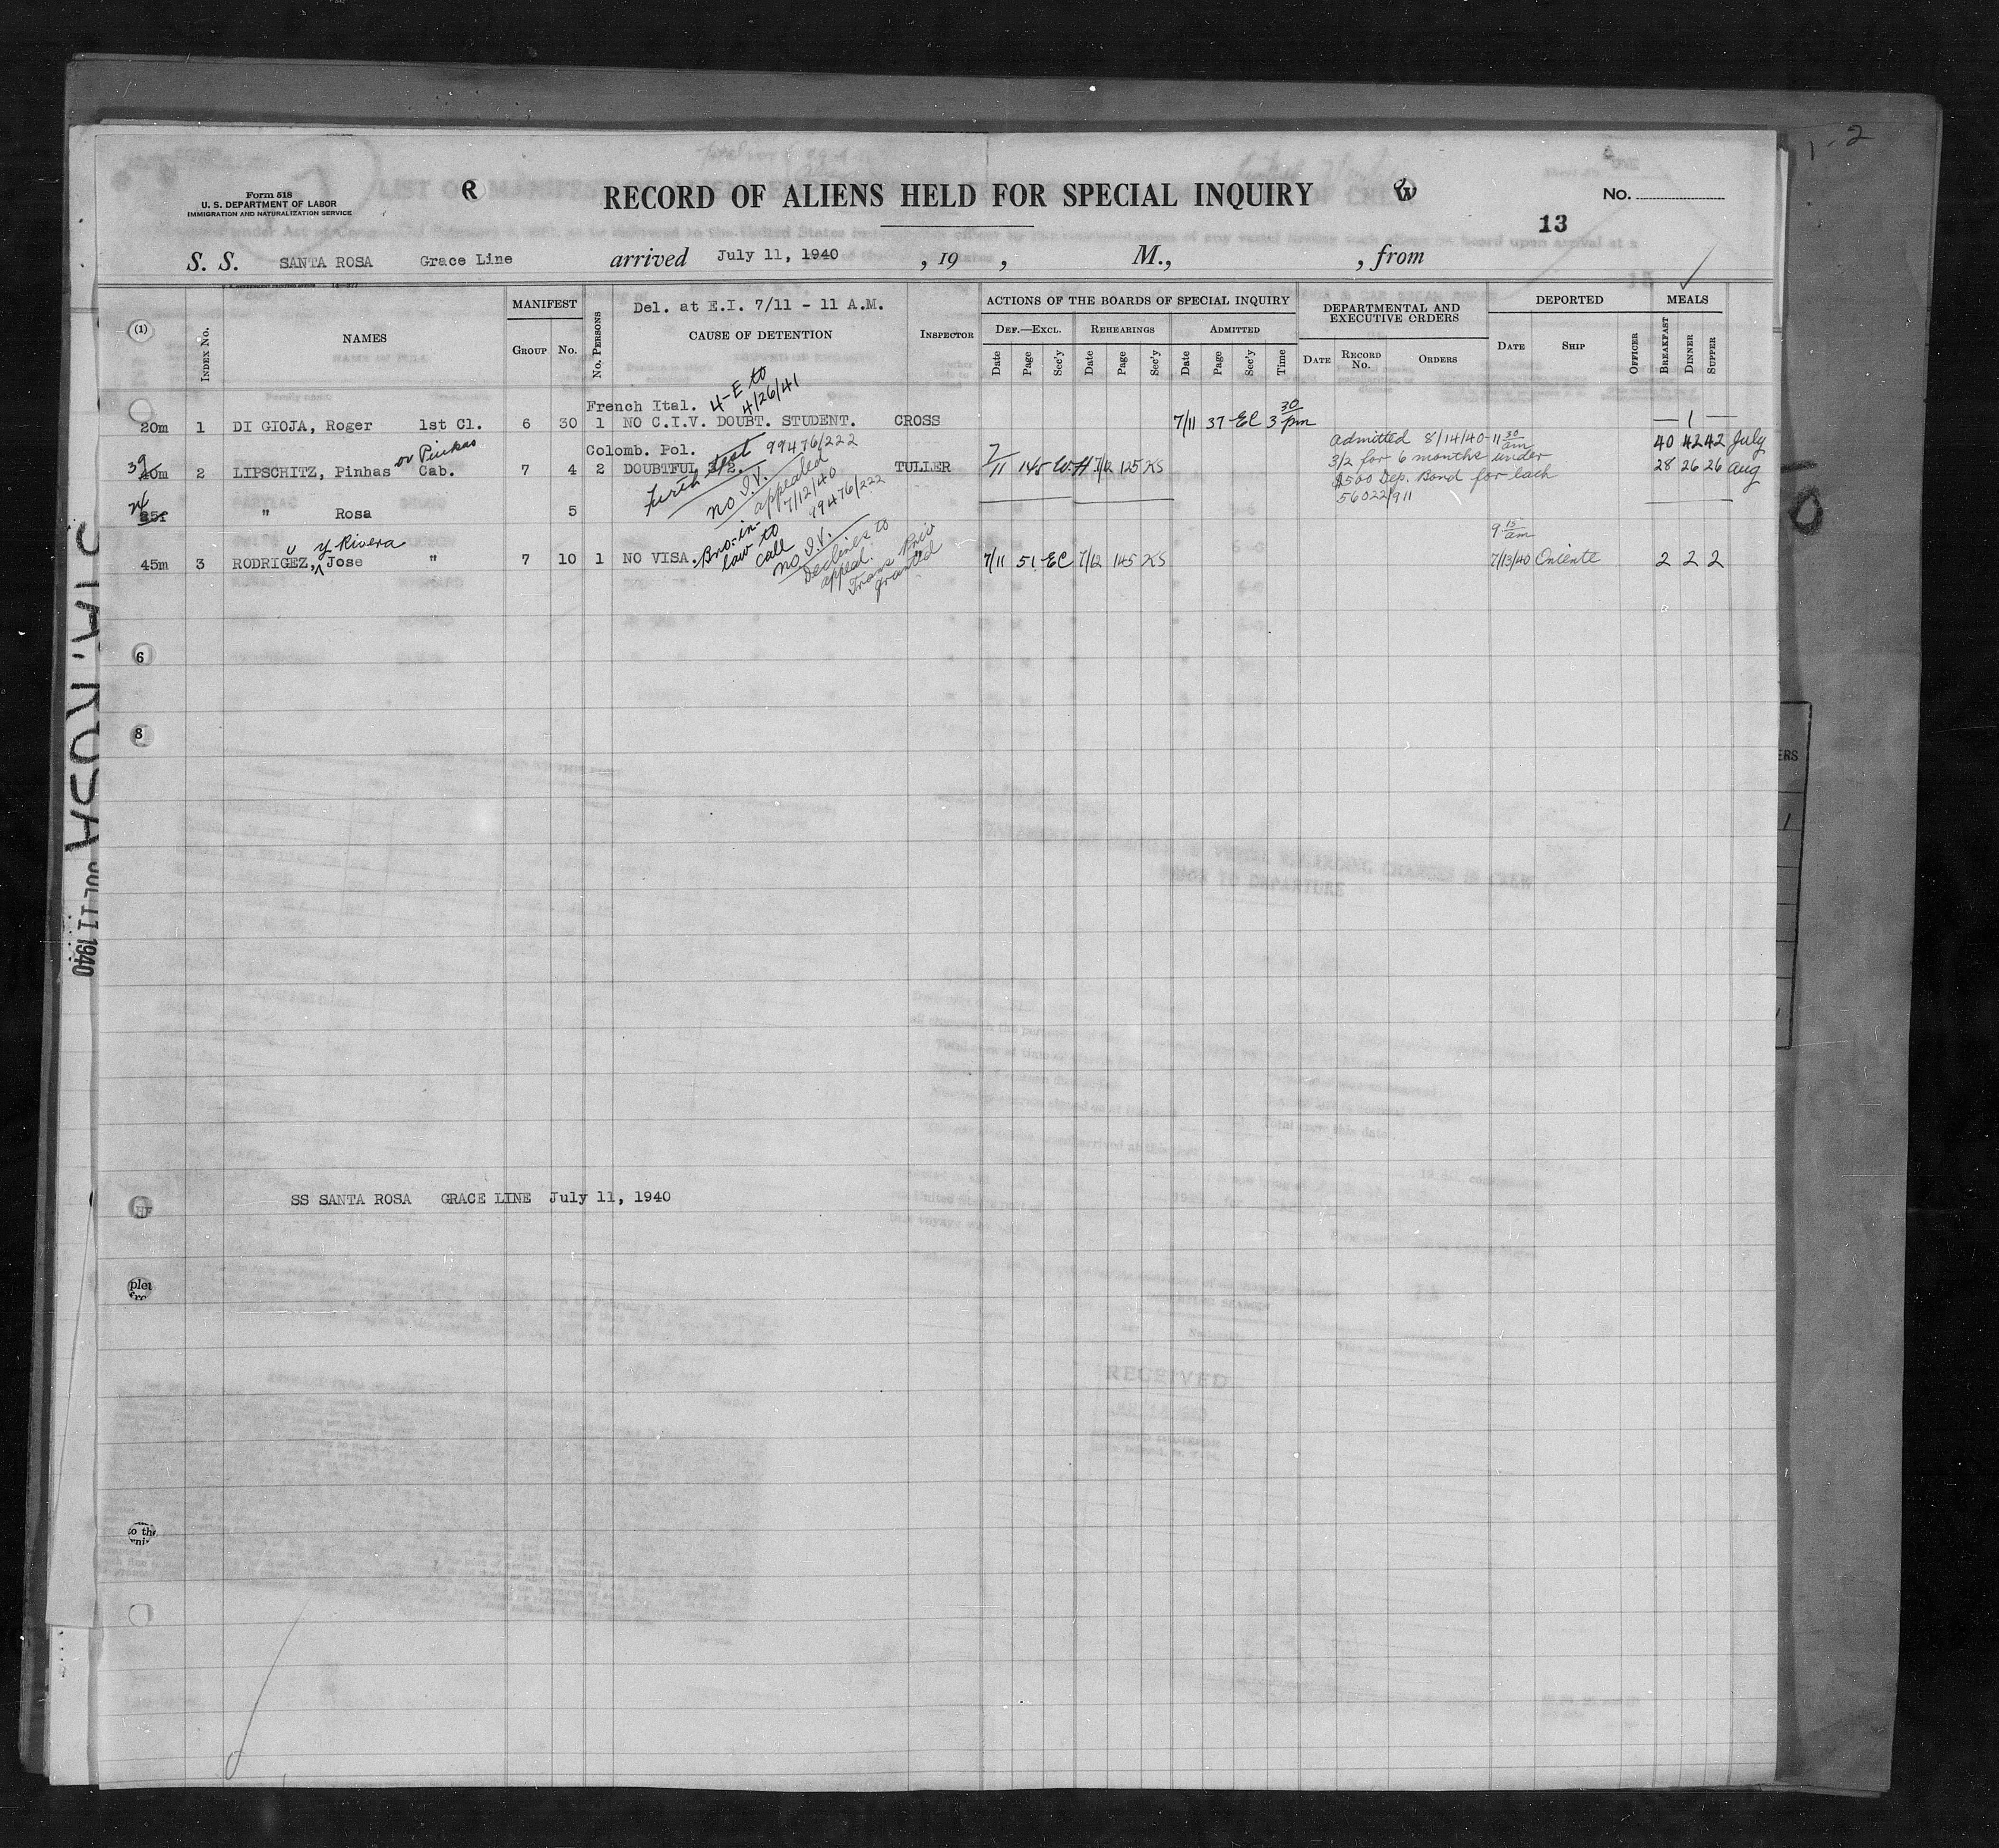 1-2
Form 518
U. S. DEPARTMENT OF LABOR
IMMIGRATION AND NATURALIZATION SERVICE
R
RECORD OF ALIENS HELD FOR SPECIAL INQUIRY
W
No.
13
S. S. SANTA ROSA Grace Line arrived July 11, 1940, 19 , M., , from
(1)
INDEX NO.
NAMES
MANIFEST
GROUP
No.
No. PERSONS
Del. at E.I. 7/11 - 11 A.M.
CAUSE OF DETENTION
INSPECTOR
ACTIONS OF THE BOARDS OF SPECIAL INQUIRY
DEF.—EXCL.
REHEARINGS
ADMITTED
Date Page Sec'y Date Page Sec'y Date Page Sec'y Time
DEPARTMENTAL AND EXECUTIVE ORDERS
DATE RECORD No. ORDERS
DEPORTED
DATE SHIP OFFICER
MEALS
BREAKFAST DINNER SUPPER
French Ital. 4-E to 4/26/41
20m 1 DI GIOJA, Roger 1st Cl. 6 30 1 NO C.I.V. DOUBT. STUDENT. CROSS 7/11 37 EC 3 30 pm — 1 —
Colomb. Pol. 99476/222
39 40m 2 LIPSCHITZ, Pinhas or Pinkas Cab. 7 4 2 DOUBTFUL 3/2. TULLER 7/11 145 W.H 7/12 125 KS
no I.V. appealed 7/12/40 99476/222
Admitted 8/14/40-11 30 am
3/2 for 6 months under
$500 Dep. Bond for each
56022/911
40 42 42 July
28 26 26 Aug
25f " Rosa 5
45m 3 RODRIGEZ, u y Rivera Jose " 7 10 1 NO VISA. Bro-in-law to call no I.V. Declines to appeal. Trans Priv granted 7/11 51 EC 7/12 145 KS
9 15 am
7/13/40 Oriente 2 2 2
6
8
SS SANTA ROSA GRACE LINE July 11, 1940
STA. ROSA
JUL 11 1940
ERS
RECEIVED